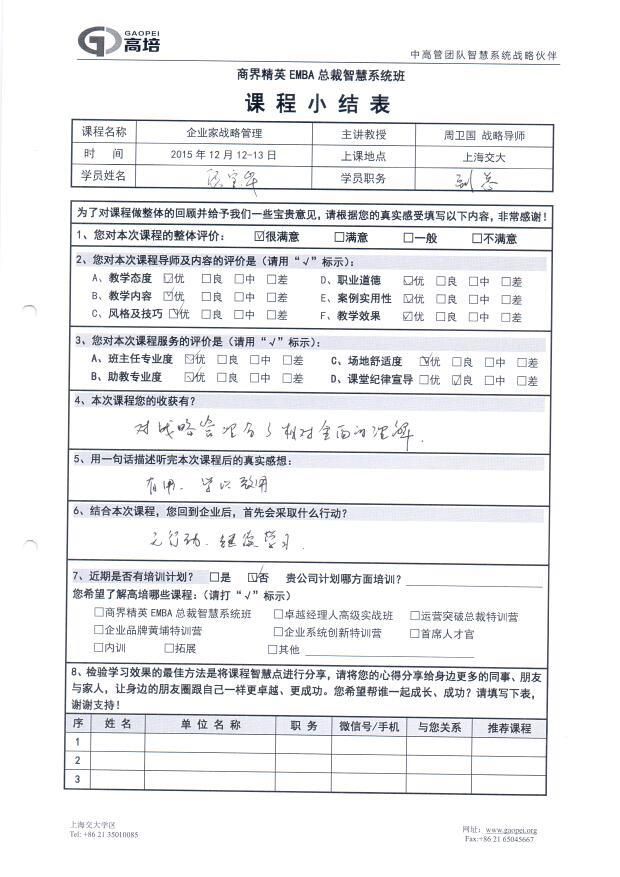 GAOPEI
高培
中高管团队智慧系统战略伙伴
商界精英EMBA总裁智慧系统班
课程小结表
课程名称 企业家战略管理 主讲教授 周卫国 战略导师
时 间 2015年12月12-13日 上课地点 上海交大
学员姓名 学员职务 副总
为了对课程做整体的回顾并给予我们一些宝贵意见，请根据您的真实感受填写以下内容，非常感谢！
1、您对本次课程的整体评价： ☑很满意 □满意 □一般 □不满意
2、您对本次课程导师及内容的评价是（请用“√”标示）：
A、教学态度 ☑优 □良 □中 □差 D、职业道德 ☑优 □良 □中 □差
B、教学内容 ☑优 □良 □中 □差 E、案例实用性 ☑优 □良 □中 □差
C、风格及技巧 ☑优 □良 □中 □差 F、教学效果 ☑优 □良 □中 □差
3、您对本次课程服务的评价是（请用“√”标示）：
A、班主任专业度 ☑优 □良 □中 □差 C、场地舒适度 ☑优 □良 □中 □差
B、助教专业度 ☑优 □良 □中 □差 D、课堂纪律宣导 □优 ☑良 □中 □差
4、本次课程您的收获有？
对战略管理有了相对全面的理解.
5、用一句话描述听完本次课程后的真实感想：
有用、学以致用
6、结合本次课程，您回到企业后，首先会采取什么行动？
无行动、继续学习.
7、近期是否有培训计划？ □是 ☑否 贵公司计划哪方面培训？
您希望了解高培哪些课程：（请打“√”标示）
□商界精英EMBA总裁智慧系统班 □卓越经理人高级实战班 □运营突破总裁特训营
□企业品牌黄埔特训营 □企业系统创新特训营 □首席人才官
□内训 □拓展 □其他
8、检验学习效果的最佳方法是将课程智慧点进行分享，请将您的心得分享给身边更多的同事、朋友
与家人，让身边的朋友圈跟自己一样更卓越、更成功。您希望帮谁一起成长、成功？请填写下表，
谢谢支持！
序 姓名 单位名称 职务 微信号/手机 与您关系 推荐课程
1
2
3
上海交大学区 网址：www.gaopei.org
Tel: +86 21 35010085 Fax:+86 21 65045667